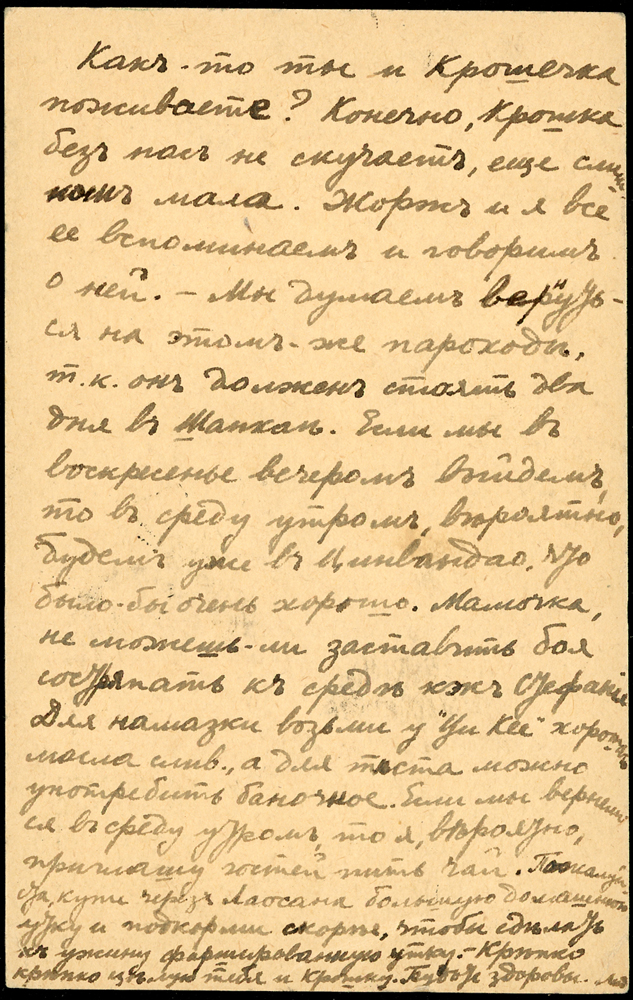 Какъ-то ты и Крошечка
поживаете? Конечно, Крошка
безъ насъ не скучаетъ, еще слиш
комъ мала. Жоржъ и я все
ее вспоминаемъ и говоримъ
о ней. – Мы думаемъ вернуть-
ся на этомъ-же пароходѣ,
т.к. онъ долженъ стоять два
дня въ Шанхаѣ. Если мы въ
воскресенье вечеромъ выйдемъ,
то въ среду утромъ, вѣроятно,
будемъ уже въ Цинвандао. Это
было-бы очень хорошо. Мамочка,
не можешь-ли заставить боя
состряпать къ средѣ кэкъ Стефанія
Для намазки возьми у "Ци Кее" хорош
масла слив., а для теста можно
употребить баночное. Если мы вернемъ
ся въ среду утромъ, то я, вѣроятно,
приглашу гостей пить чай. Пожалуй-
ста, купи черезъ Лаосана большую домашнюю
утку и подкорми скорѣе, чтобы сдѣлать
къ ужину фаршированную утку. – Крѣпко
крѣпко цѣлую тебя и Крошку. Будьте здоровы.